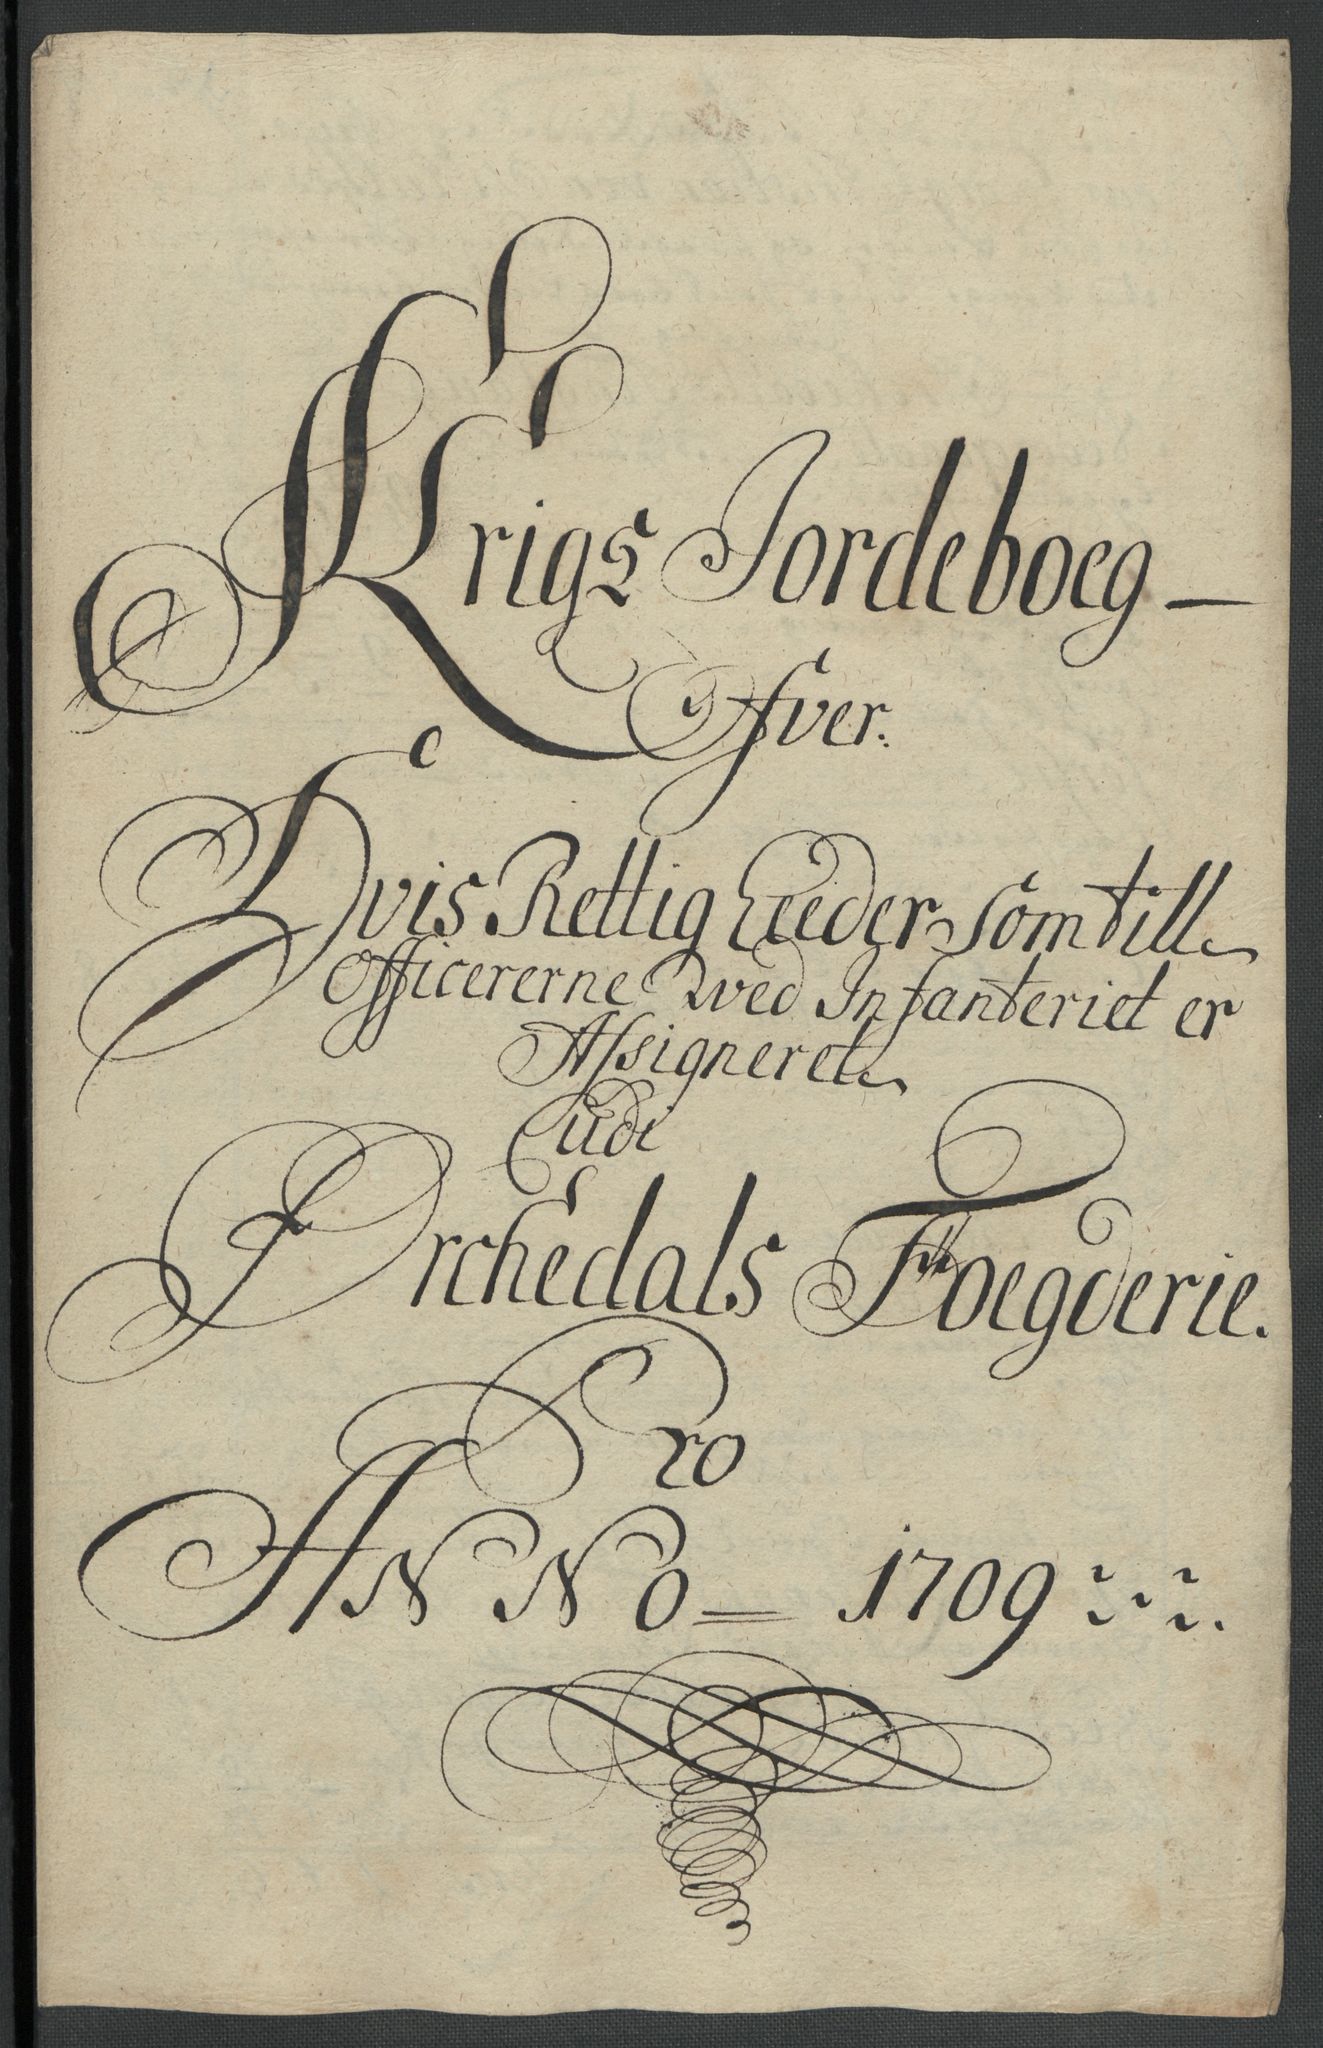 Krigs Jordeboeg —
Ofver.
Hvis Rettigheeder Som till
Officererne Wed Infanteriet er
Assigneret
udi
Orchedals Foegderie.
Pro
ANNO = 1709